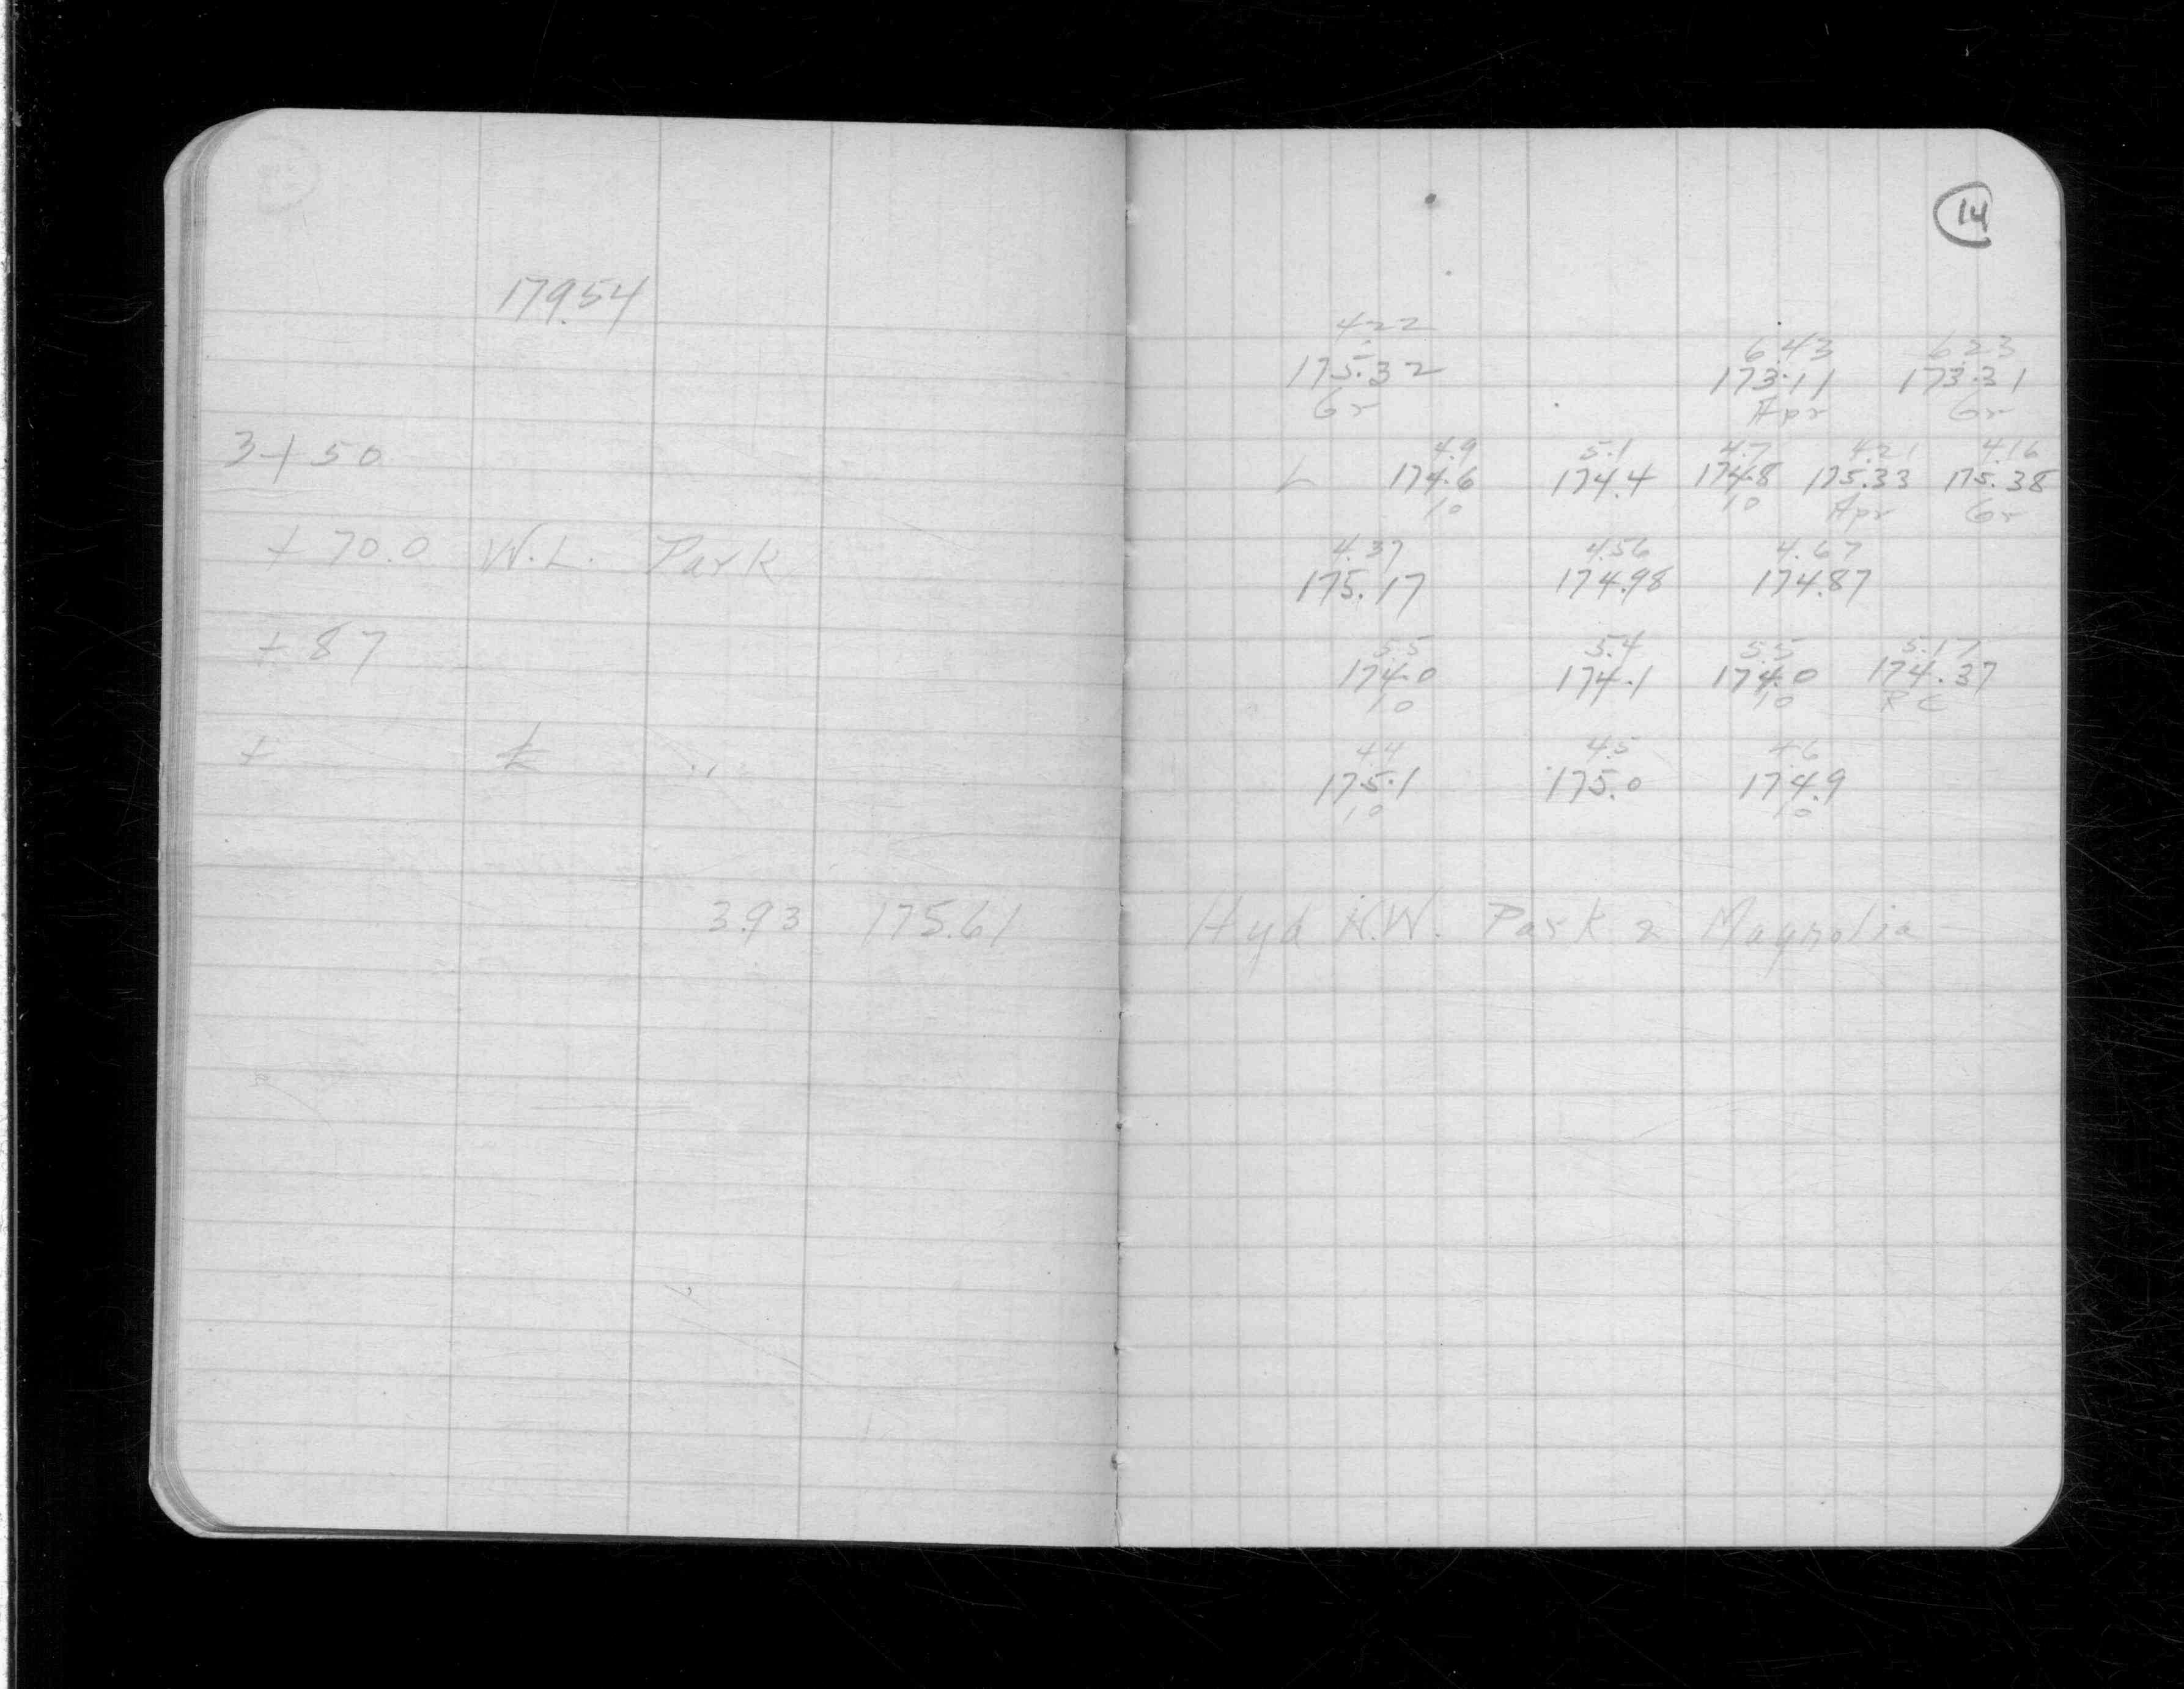 14
179.54
4.22
175.32
Gr
6.43 6.23
173.11 173.31
Apr Gr
3+50
4.9 5.1 4.7 4.21 4.16
L 174.6 174.4 174.8 175.33 175.38
10 10 Apr Gr
+70.0 W.L. Park
4.37 4.56 4.67
175.17 174.98 174.87
+87
5.5 5.4 5.5 5.17
174.0 174.1 174.0 174.37
10 10 RC
+ ℄ "
4.4 4.5 4.6
175.1 175.0 174.9
10 10
3.93 175.61 Hyd N.W. Park & Magnolia